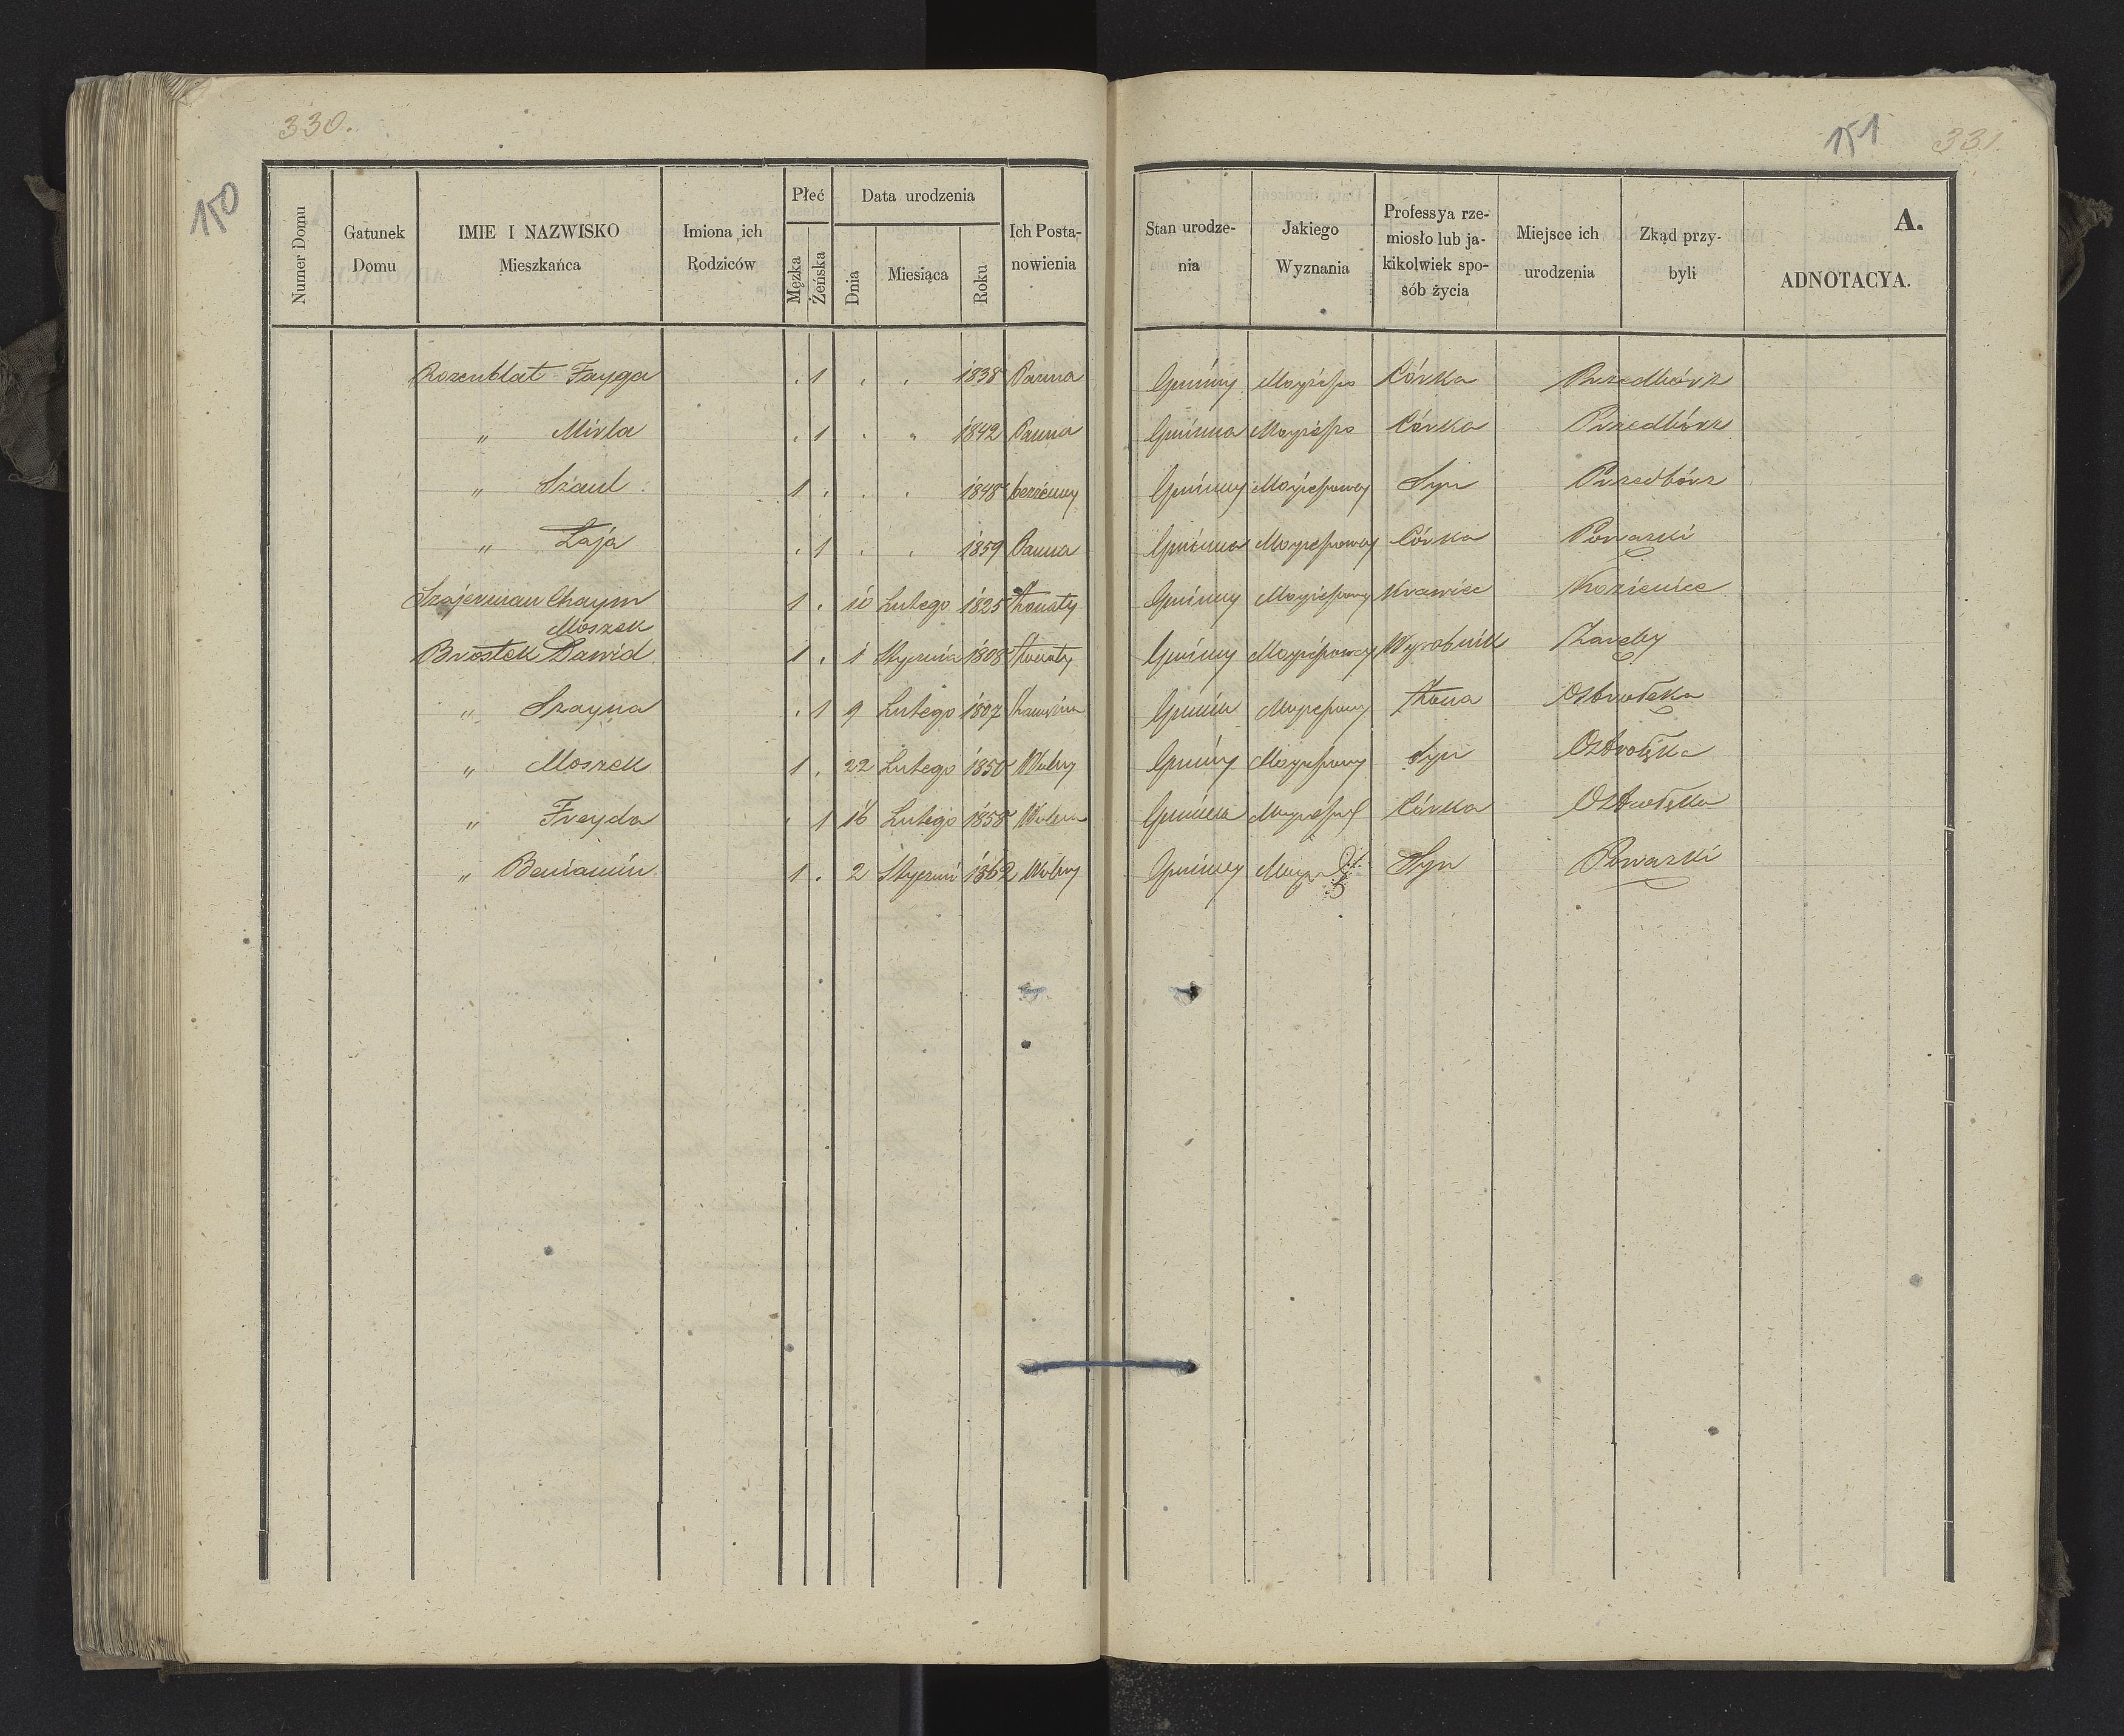 330.
150
Numer Domu
Gatunek Domu
IMIE I NAZWISKO Mieszkańca
Imiona ich Rodziców
Płeć
Męzka
Żeńska
Data urodzenia
Dnia
Miesiąca
Roku
Ich Postanowienia
151 331.
Stan urodzenia
Jakiego Wyznania
Professya rzemiosło lub jakikolwiek sposób życia
Miejsce ich urodzenia
Zkąd przybyli
A.
ADNOTACYA.
Rozenblat Fayga . 1 . . 1838 Panna Gminny Mojżeszo Córka Przedbórz
" Mirla . 1 . " 1842 Panna Gminna Mojżeszo Córka Przedbórz
" Szaul 1 . . . 1848 bezżenny Gminny Mojżeszowy Syn Przedbórz
" Łaja . 1 . . 1859 Panna Gminna Mojżeszowy Córka Powązki
Szajerman Chaym Moszek 1 . 10 Lutego 1825 Żonaty Gminny Mojżeszowy Krawiec Kozienice
Brostek Dawid 1 . 1 Stycznia 1808 Żonaty Gminny Mojżeszowy Wyrobnik Zaręby
" Szayna . 1 9 Lutego 1807 Gminna Mojżeszowy Żona Ostrołęka
" Moszek 1 . 22 Lutego 1850 Wolny Gminny Mojżeszowy Syn Ostrołęka
" Freyda . 1 16 Lutego 1858 Wolna Gminna Córka Ostrołęka
" Beniamin 1 . 2 Stycznia 1862 Wolny Gminny Syn Powązki